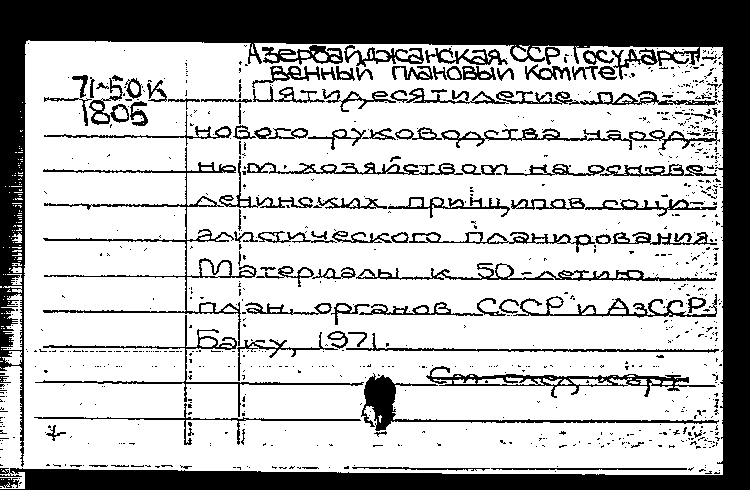 Азербайджанская ССР. Государст-
венный плановый комитет.
71-50к
1805
Пятидесятилетие пла-
нового руководства народ-
ным хозяйством на основе
ленинских принципов соци-
алистического планирования.
Материалы к 50-летию
план. органов СССР и АзССР.
Баку, 1971.
См. след. карт